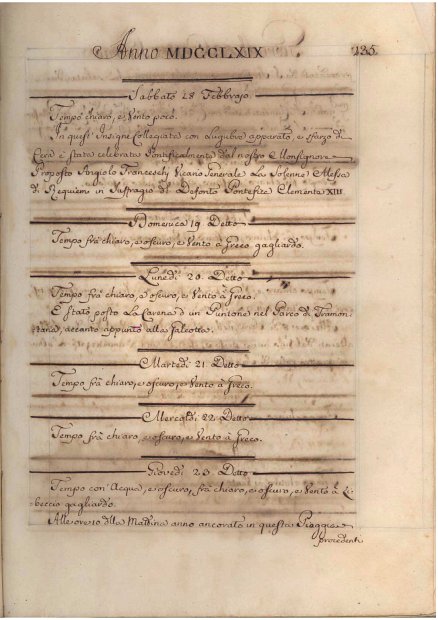 Anno MDCCLXIX 135.
Sabbato 18 Febbrajo.
Tempo chiaro, e Vento poco.
In quest' Insigne Collegiata con Lugubre apparato, e sfarzo di
Cera è stata celebrata Pontificalmente dal nostro Monsignore
Proposto Angiolo Franceschj Vicario Generale La Solenne Messa
di Requiem in Suffragio del Defonto Pontefice Clemente XIII.
Domenica 19. Detto
Tempo frà chiaro, e oscuro, e Vento à Greco gagliardo.
Lunedì 20. Detto
Tempo frà chiaro, e oscuro, e Vento à Greco.
È stato posto La Carena d'un Puntone nel Parco di Tramon-
tana, accanto appunto alla Galeotta.
Martedì 21 Detto
Tempo frà chiaro, e oscuro, e Vento à Greco.
Mercoldì 22. Detto
Tempo frà chiaro, e oscuro, e Vento à Greco.
Giovedì 23. Detto
Tempo con Acqua, e oscuro, frà chiaro, e oscuro, e Vento à Li-
beccio gagliardo.
Alle ore 10 della Mattina anno ancorato in questa Piaggia
procedenti